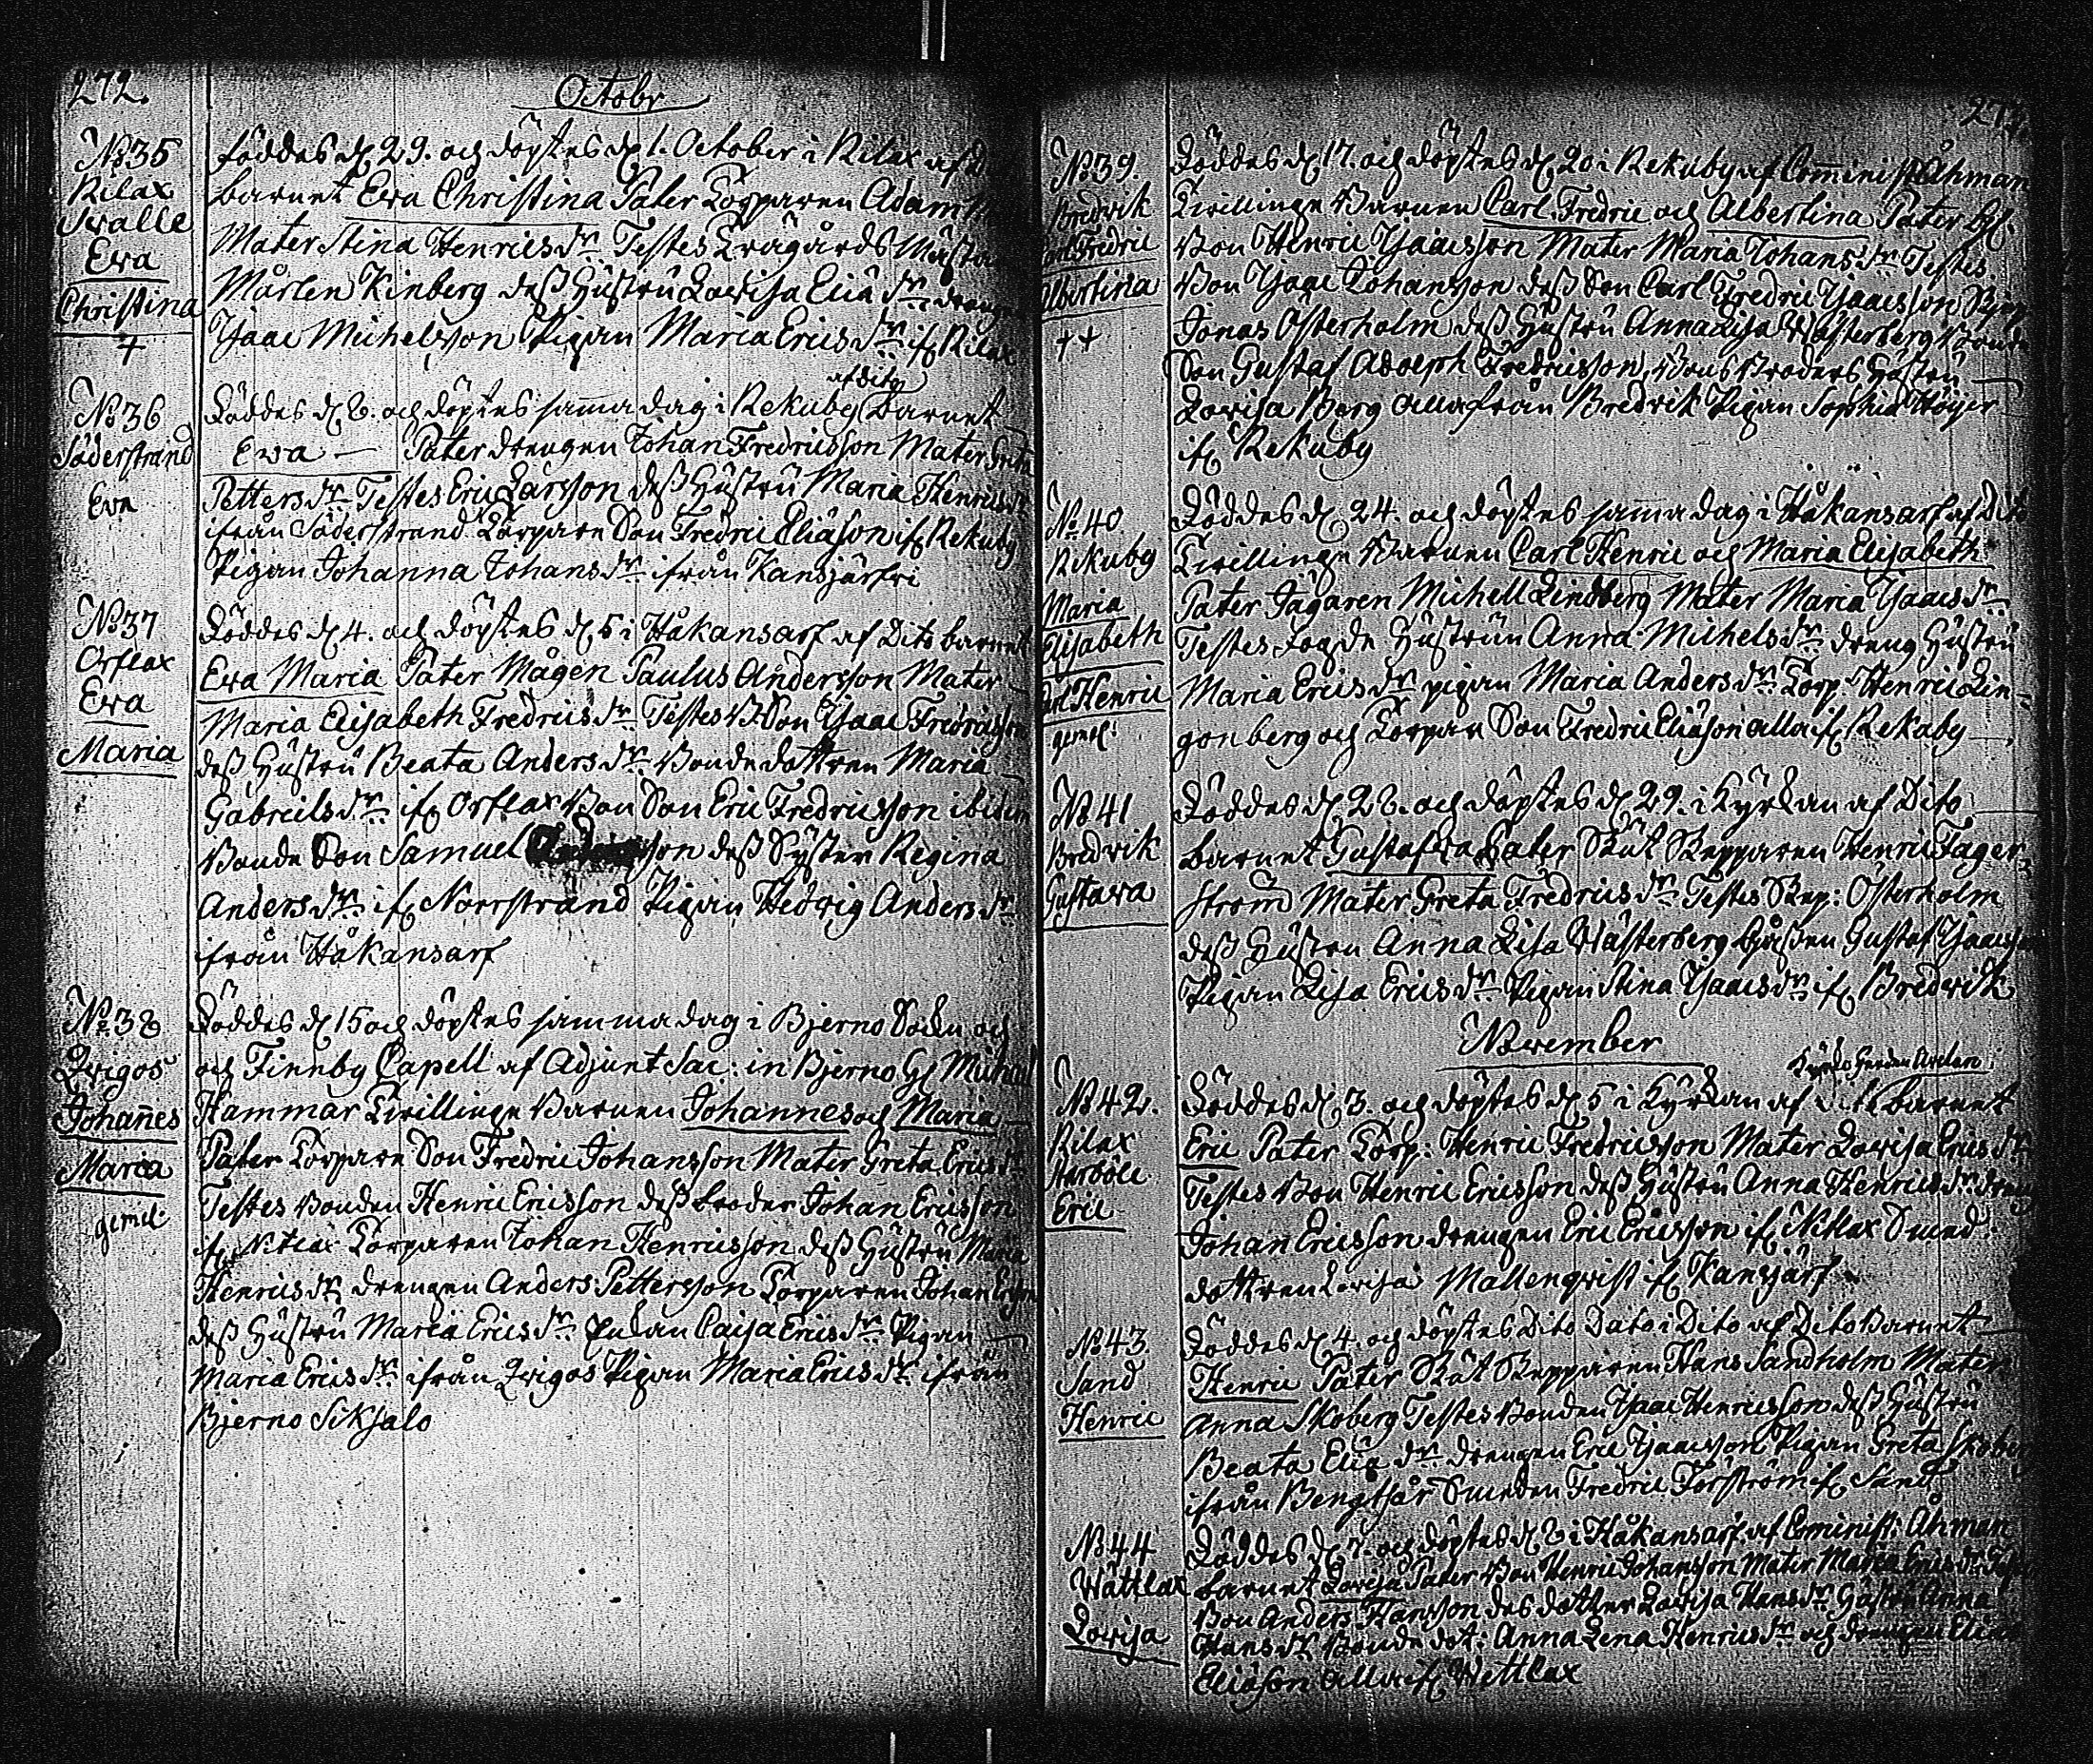 272.
Octobr
No 35
Rilax
Walle
Eva
Christina
+
föddes d 29. och döptes d 1. October i Rilax af
barnet Eva Christina Pater Torparen Adam
Mater Stina Henrics dr Testes Trägårds Mästa
Mårten Kinberg dess Hustru Lovisa Eliæ dr drengen
Isaac Michelsson Pigan Maria Erics dr if Rilax
No 36
Söderstrand
Eva
af dito
Föddes d 2. och döptes samma dag i Rekuby barnet
Eva — Pater drengen Johan Fredricsson Mater Greta
Petters dr Testes Eric Larsson dess Hustru Maria Henrics dr
ifrån Söderstrand Torpare Son Fredric Eliasson if Rekuby
Pigan Johanna Johans dr ifrån Kansjärfvi
No 37
Orflax
Eva
Maria
Föddes d 4. och döptes d 5 i Håkansarf af Dito barnet
Eva Maria Pater Mågen Paulus Andersson Mater
Maria Elisabeth Fredrics dr Testes B. Son Isaac Fredricsson
dess Hustru Beata Anders dr Bonde dottren Maria
Gabriels dr if Orflax Bon Son Eric Fredricsson ibidem
Bonde Son Samuel son dess Syster Regina
Anders dr if Norrstrand Pigan Hedvig Anders dr
ifrån Håkansarf
No 38
Qvigos
Johannes
Maria
gemel:
Föddes d 15 och döptes samma dag i Bjerno Sockn och
och Finnby Capell af Adjunt Sac: in Bjerno H Michael
Hammar Tvillinge Barnen Johannes och Maria
Pater Torpare Son Fredric Johansson Mater Greta Erics dr
Testes Bonden Henric Ericsson dess broder Johan Ericsson
if Torparen Johan Henricsson dess Hustru Maria
Henrics dr drengen Anders Pettersson Torparen Johan Ericsson
dess Hustru Maria Erics dr Enkan Caisa Erics dr Pigan
Maria Erics dr ifrån Qvigos Pigan Maria Erics dr ifrån
Bjerno Siksalo
No 39.
Bredvik
Carl Fredric
Albertina
++
Föddes d 17. och döptes d 20 i Rekuby af Comminist Åhman
Tvillinge Barnen Carl Fredric och Albertina Pater
Bon Henric Isaacsson Mater Maria Johans dr Testes
Bon Isaac Johansson dess Son Carl Fredric Isaacsson Skep
Jonas Österholm dess Hustru Anna Lisa Wästerberg Bonde
Son Gustaf Adolph Fredricsson, Bons Broders Hustru
Lovisa Berg alla från Bredvik Pigan Sophia Höijer
if Rekuby
No 40
Rekuby
Maria
Elisabeth
Carl Henric
gemel:
Föddes d 24. och döptes samma dag i Håkansarf af Dito
Tvillinge Barnen Carl Henric och Maria Elisabeth
Pater Jägaren Michell Lindberg Mater Maria Isaacs dr
Testes Hustrun Anna Michels dr dreng Hustru
Maria Erics dr pigan Maria Anders dr Torp: Henric Lin-
gonberg och Torpar Son Fredric Eliäson alla if Rekuby
No 41
Bredvik
Gustava
Föddes d 28. och döptes d 29. i Kyrkan af Dito
barnet Gustafva Pater Skut Skepparen Henric Fager-
ström Mater Greta Fredrics dr Testes Skep: Österholm
dess Hustru Anna Lisa Wästerberg Gossen Gustaf Isaacsson
Pigan Lisa Erics dr Pigan Stina Isaacs dr if Bredvik
November
No 42.
Rilax
Eric
Föddes d 3. och döptes d 5 i Kyrkan af barnet
Eric Pater Torp: Henric Fredricsson Mater Lovisa Erics dr
Testes Bon Henric Ericsson dess Hustru Anna Henrics dr dreng
Johan Ericsson drengen Eric Ericsson if Rilax Smed
dottren Lovisa Mallenqvist if Kansjärf
No 43.
Sand
Henric
Föddes d 4. och döptes Dito Dato i Dito af Dito Barnet
Henric Pater Skut Skepparen Hans Sandholm Mater
Anna Skoberg Testes Bonden Isaac Henricsson dess Hustru
Beata Eliæ dr drengen Eric Isaacsson Pigan Greta Skoberg
ifrån Bengtsår Smeden Fredric Forsström if Sand
No 44
Wättlax
Lovisa
Föddes d 7. och döptes d 8 i Håkansarf af Cominist: Åhman
barnet Lovisa Pater Bon Henric Johansson Mater Maria Erics dr
Bon Anders Hansson des dotter Lovisa Hans dr Hustru Anna
Hans dr Bonde dot: Anna Lena Henrics dr och drengen Elias
Eliäson alla if Wettlax